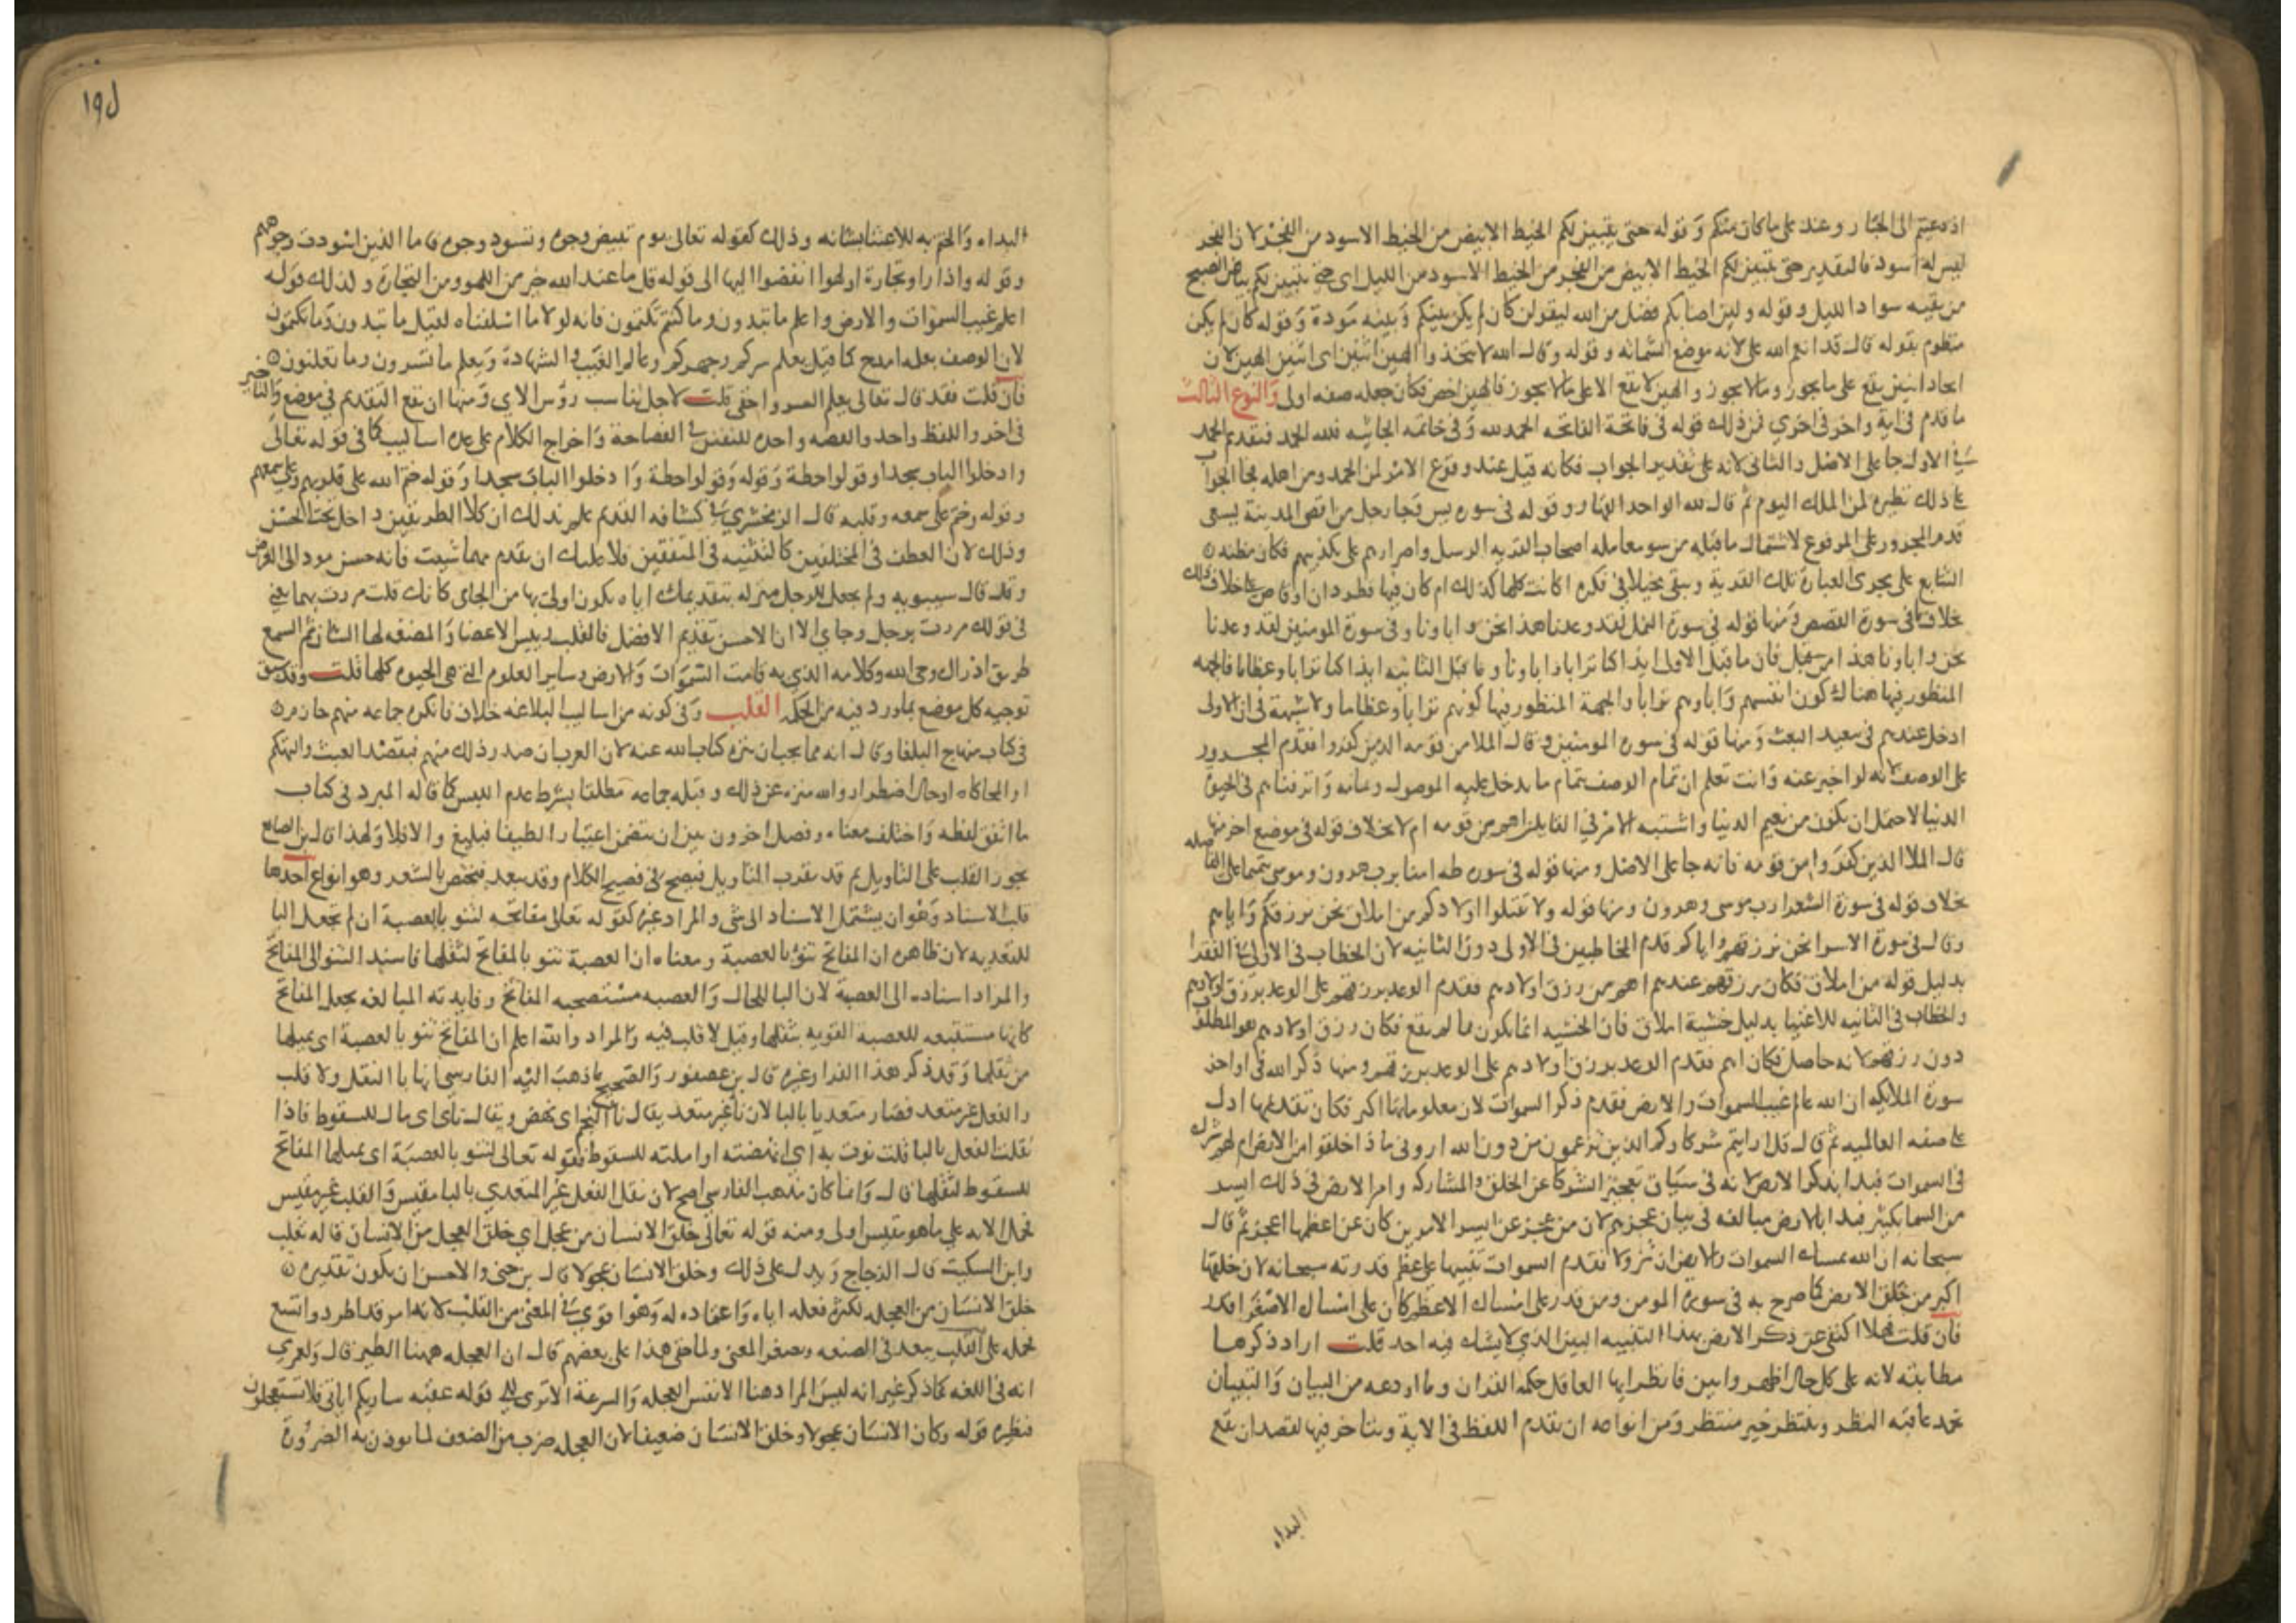 اذ دعيتم الى الجبار وعند على ما كان منكم وقوله حتى يتبين لكم الخيط الابيض من الخيط الاسود من الفجر لان الفجر
ليس له اسود فالتقدير حتى يتبين لكم الخيط الابيض من الفجر من الخيط الاسود من الليل اى حتى يتبين لكم بياض الصبح
من بقيه سواد الليل وقوله ولين اصابكم فضل من الله ليقولن كان لم يكن بينكم وبينه مودة وقوله كان لم يكن
منظوم بقوله قال قد انعم الله على لانه موضع الشماته وقوله وقال الله لا تتخذوا الهين اثنين اى اثنين الهين لان
اتخاذ اثنين يقع على ما يجوز وما لا يجوز والهين لا يقع الا على ما لا يجوز فالهين اخص فكان جعله صفه اولى والنوع الثالث
ما قدم فى اية واخر فى اخرى فمن ذلك قوله فى فاتحة الفاتحه الحمد لله وفى خاتمه الجاثيه فلله الحمد فتقديم الحمد
فى الاول جا على الاصل والثانى لانه على تقدير الجواب فكانه قيل عند وقوع الامر لمن الحمد ومن اهله فجا الجواب
على ذلك نظيره لمن الملك اليوم ثم قال لله الواحد القهار وقوله فى سوره يس وجا رجل من اقصى المدينة يسعى
قدم المجرور على المرفوع لاشتمال ما قبله من سو معامله اصحاب القريه الرسل واصرارهم على تكذيبهم فكان مظنه
التتابع على مجرى العبارة تلك القرية ويبقى مخيلا فى فكره اكانت كلها كذلك ام كان فيها قطر دان او قاص على خلاف ذلك
بخلاف ما فى سورة القصص ومنها قوله فى سورة النمل لقد وعدنا هذا نحن واباونا وفى سورة المومنين لقد وعدنا
نحن واباونا هذا من قبل فان ما قبل الاولى ايذا كنا ترابا واباونا وما قبل الثانيه ايذا كنا ترابا وعظاما فالجهه
المنظور فيها هناك كون انفسهم واباوهم ترابا والجهة المنظور فيها كونهم ترابا وعظاما ولا شبهة فى ان الاولى
ادخل عندهم فى تبعيد البعث ومنها قوله فى سوره المومنين وقال الملا من قومه الذين كفروا فقدم المجرور
على الوصف لانه لو اخر عنه وانت تعلم ان تمام الوصف بتمام ما يدخل عليه الموصول وتمامه واترفناهم فى الحيوة
الدنيا لاحتمل ان يكون من نعيم الدنيا واشتبه الامر فى القايلين اهم من قومه ام لا بخلاف قوله فى موضع اخر منها
قال الملا الذين كفروا من قومه فانه جا على الاصل ومنها قوله فى سوره طه امنا برب هرون وموسى بخلاف
بخلاف قوله فى سورة الشعرا رب موسى وهرون ومنها قوله ولا تقتلوا اولادكم من املاق نحن نرزقكم واياهم
وقال فى سورة الاسرا نحن نرزقهم واياكم قدم المخاطبين فى الاولى دون الثانيه لان الخطاب فى الاولى للفقرا
بدليل قوله من املاق فكان رزقهم عندهم اهم من رزق اولادهم فقدم الوعد برزقهم على الوعد برزق اولادهم
والخطاب فى الثانيه للاغنيا بدليل خشية املاق فان الخشيه انما يكون مما لم يقع فكان رزق اولادهم هو المطلوب
دون رزقهم لانه حاصل فكان اهم فقدم الوعد برزق اولادهم على الوعد برزقهم ومنها ذكر الله فى اواخر
سورة الملايكه ان الله عالم غيب السموات والارض فقدم ذكر السموات لان معلوماتها اكثر فكان تقديمها ادل
على صفه العالميه ثم قال قل ارايتم شركاوكم الذين تزعمون من دون الله ارونى ماذا خلقوا من الارض ام لهم شرك
فى السموات فبدا بذكر الارض لانه فى سياق تعجيز الشركا عن الخلق والمشاركه وامر الارض فى ذلك ايسر
من السما بكثير فبدا بالارض مبالغه فى بيان عجزهم لان من عجز عن ايسر الامرين كان عن اعظمهما اعجز ثم قال
سبحانه ان الله يمسك السموات والارض ان تزولا فقدم السموات تنبيها على عظم قدرته سبحانه لان خلقها
اكبر من خلق الارض كما صرح به فى سورة المومن ومن قدر على امساك الاعظم كان على امساك الاصغر اقدر
فان قلت فهلا اكتفى عن ذكر الارض بهذا التنبيه البين الذى لا يشك فيه احد قلت اراد ذكرها
مطابقة لانه على كل حال اظهر وابين فانظر ايها العاقل حكمه القران وما اودعه من البيان والتبيان
تحمد عاقبه النظر وتنتظر خير منتظر ومن انواعه ان يقدم اللفظ فى الاية ويتاخر فيها لقصد ان يقع
البداه
ل١٩
البداه والختم به للاعتنا بشانه وذلك كقوله تعالى يوم تبيض وجوه وتسود وجوه فاما الذين اسودت وجوههم
وقوله واذا راوا تجارة او لهوا انفضوا اليها الى قوله قل ما عند الله خير من اللهو ومن التجارة وكذلك قوله
اعلم غيب السموات والارض واعلم ما تبدون وما كنتم تكتمون فانه لولا ما اسلفناه لقيل ما تبدون وما تكتمون
لان الوصف بعلمه امدح كما قيل يعلم سركم وجهركم وعالم الغيب والشهادة ويعلم ما تسرون وما تعلنون
فان قلت فقد قال تعالى يعلم السر واخفى قلت لاجل تناسب رؤس الاي ومنها ان يقع التقديم فى موضع والتاخير
فى اخر واللفظ واحد والقصه واحده للتفنن فى الفصاحة واخراج الكلام على عده اساليب كما فى قوله تعالى
وادخلوا الباب سجدا وقولوا حطة وقوله وقولوا حطة وادخلوا الباب سجدا وقوله ختم الله على قلوبهم وعلى سمعهم
وقوله وختم على سمعه وقلبه قال الزمخشري فى كشافه القديم علم بذلك ان كلا الطريقين داخل تحت الحسن
وذلك لان العطف فى المختلفين كالتثنيه فى المتفقين فلا عليك ان تقدم ايهما شيت فانه حسن مود الى الغرض
وقد قال سيبويه ولم يجعل للرجل منزله بتقديمك اياه يكون اولى بها من الجاى كانك قلت مررت بهما يعنى
فى قولك مررت برجل وجاي الا ان الاحسن تقديم الافضل فالقلب رييس الاعضا والمضغه لها الشان ثم السمع
طريق ادراك وحى الله وكلامه الذى به قامت السموات والارض وساير العلوم التى هى الحيوه كلها قلت وقد سبق
توجيه كل موضع بما ورد فيه من الحكمه القلب وفى كونه من اساليب البلاغه خلاف فانكره جماعه منهم حازم
فى كتاب منهاج البلغا وقال انه مما يجب ان ينزه كتاب الله عنه لان العرب ان صدر ذلك منهم فبقصد العبث والتهكم
او المحاكاه او حال اضطرار والله منزه عن ذلك وقبله جماعه مطلقا بشرط عدم اللبس كما قاله المبرد فى كتاب
ما اتفق لفظه واختلف معناه وفصل اخرون بين ان يتضمن اعتبارا لطيفا فبليغ والا فلا ولهذا قال بن الضايع
يجوز القلب على التاويل ثم قد يقرب التاويل فيصح فى فصيح الكلام وقد يبعد فيختص بالشعر وهو انواع احدها
قلب الاسناد وهو ان يشتمل الاسناد الى شى والمراد غيره كقوله تعالى مفاتحه لتنو بالعصبة ان لم تجعل البا
للتعديه لان ظاهره ان المفاتح تنؤ بالعصبة ومعناه ان العصبة تنو بالمفاتح لثقلها فاسند التنو الى المفاتح
والمراد اسناده الى العصبة لان البا للحال والعصبه مستصحبه المفاتح وفايدته المبالغه بجعل المفاتح
كانها مستتبعه للعصبة القويه بثقلها وقيل لا قلب فيه والمراد والله اعلم ان المفاتح تنو بالعصبة اى تميلها
من ثقلها وقد ذكر هذا الفرا وغيره قال بن عصفور والصحيح ما ذهب اليه الفارسى انها بالنقل ولا قلب
والفعل غير متعد فصار متعديا بالبا لان نا غير متعد يقال نا النجم اى نهض ويقال نا اى مال للسقوط فاذا
نقلت الفعل بالبا قلت نوت به اي انهضته او املته للسقوط فقوله تعالى لتنو بالعصبة اى تميلها المفاتح
للسقوط لثقلها قال وانما كان مذهب الفارسى اصح لان نقل الفعل غير المتعدي بالبا مقيس والقلب غير مقيس
فحمل الايه على ما هو مقيس اولى ومنه قوله تعالى خلق الانسان من عجل اي خلق العجل من الانسان قاله ثعلب
وابن السكيت قال الزجاج ويدل على ذلك وخلق الانسان عجولا قال بن جنى والاحسن ان يكون تقديره
خلق الانسان من العجله لكثرة فعله اياه واعتماده له وهو اقوى فى المعنى من القلب لانه امر قد اطرد واتسع
فحمله على القلب يبعد فى الصنعه ويصغر المعنى ولما خفى هذا على بعضهم قال ان العجله ههنا الطين قال ولعمري
انه فى اللغه كما ذكر غير انه ليس المراد هنا الا نفس العجله والسرعة الا ترى الى قوله عقبه ساريكم اياتى فلا تستعجلون
فنظيره قوله وكان الانسان عجولا وخلق الانسان ضعيفا لان العجله ضرب من الضعف لما يوذن به الضرورة